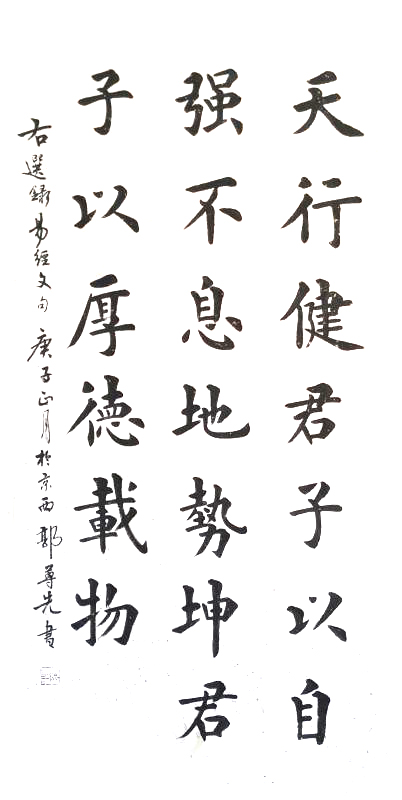 天行健君子以自
强不息地勢坤君
子以厚德載物
右選録易經文句庚子正月於京西郭尊先書